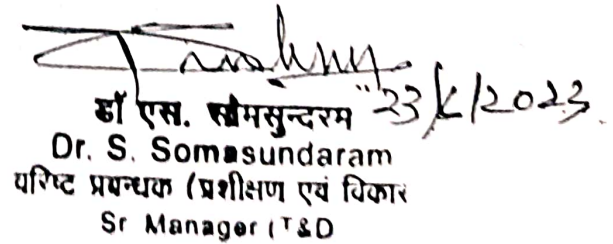 23/6/2023
डॉ एस. सोमसुन्दरम
Dr. S. Somasundaram
परिष्ट प्रबन्धक (प्रशीक्षण एवं विकार
Sr Manager (T&D